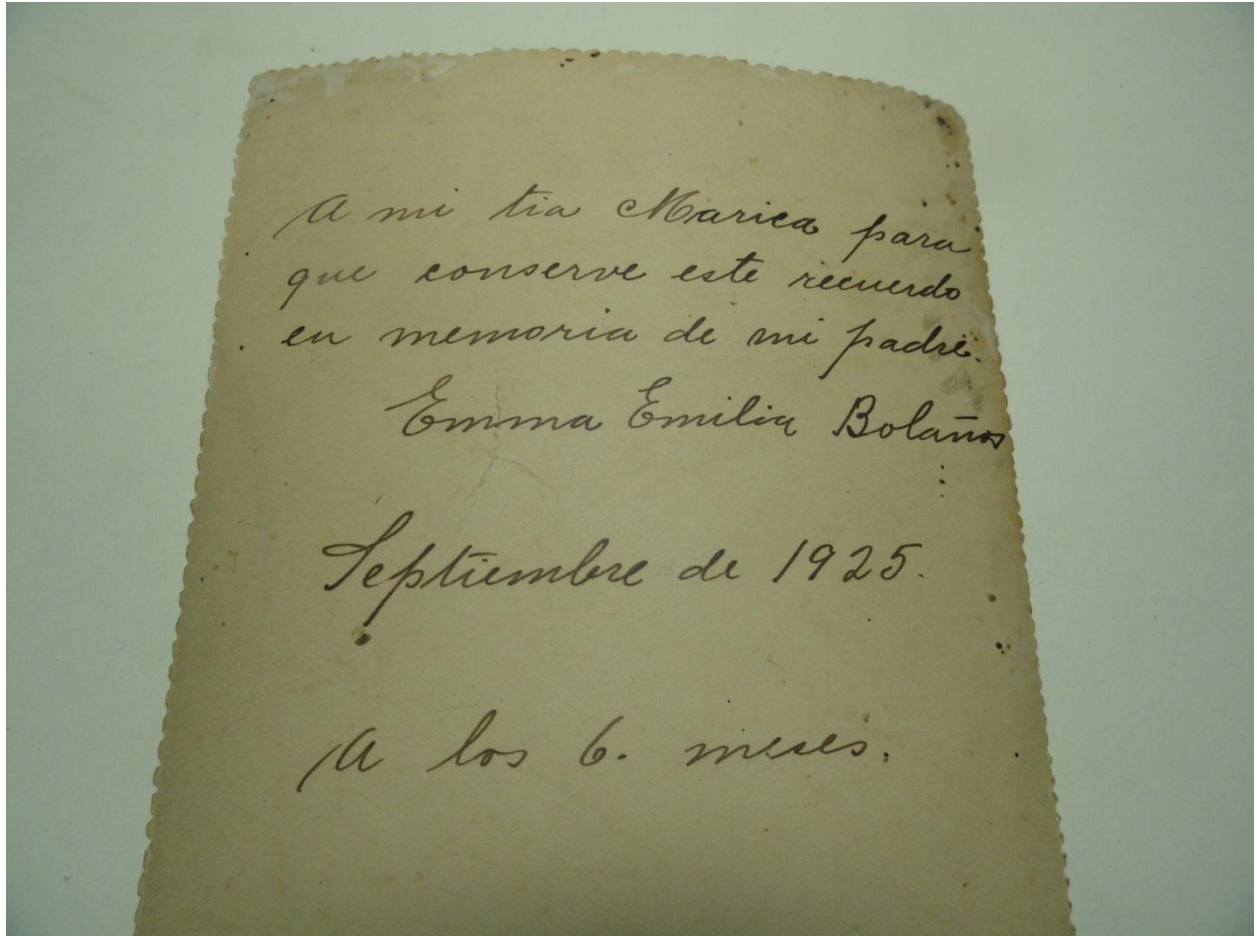 A mi tia Marica para
que conserve este recuerdo
en memoria de mi padre.
Emma Emilia Bolaños
Septiembre de 1925.
A los 6. meses.